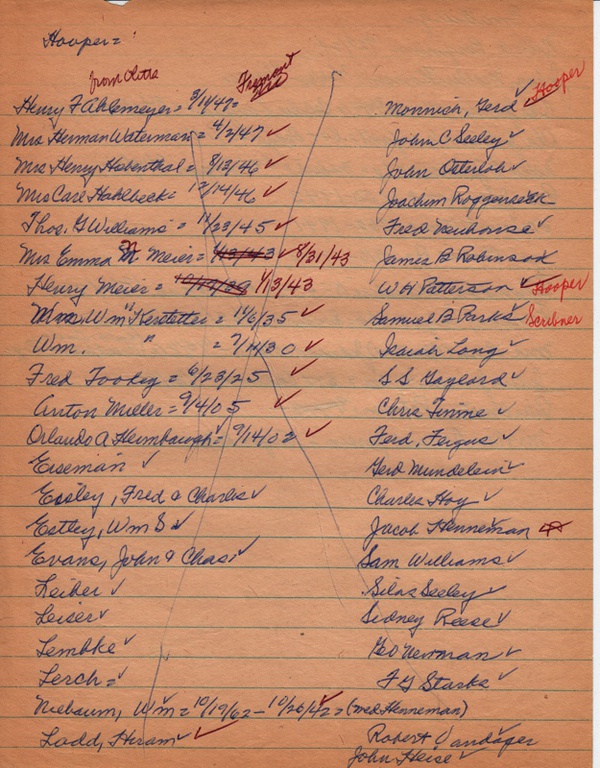 Hooper =
from Oletta
Fremont
Henry F Ahlemeyer = 3/19/47 =
Mrs Herman Waterman = 4/2/47 ✓
Mrs Henry Habenthal = 8/13/46 ✓
Mrs Carl Hahlbeck = 12/14/46 ✓
Thos. G Williams = 11/23/45 ✓
Mrs Emma M Meier = 1/13/43 ✓ 8/31/43
Henry Meier = 1/13/43
Mrs, Wm Kerstetter = 11/6/35 ✓
Wm. " = 7/14/30 ✓
Fred Tookey = 6/23/25 ✓
Anton Miller = 9/4/05 ✓
Orlando A Heimbaugh = 9/14/02 ✓
Eiseman ✓
Essley, Fred & Charlie ✓
Estley, Wm S ✓
Evans, John & Chas. ✓
Leiber ✓
Leiser ✓
Lembke ✓
Lerch = ✓
Niebaum, Wm = 10/19/62 – 10/26/42 = (wed Henneman)
Ladd, Hiram ✓
Monnich, Gerd ✓ Hooper
John C Seeley ✓
John Osterloh ✓
Joachim Roggensack
Fred Neuhouse ✓
James B Robinson
W H Patterson Hooper
Samuel B Parks ✓ Scribner
Isaiah Long ✓
S S Gayeard ✓
Chris Tinme ✓
Ferd, Fergus ✓
Gerd Mundelein ✓
Charles Hoy ✓
Jacob Henneman
Sam Williams ✓
Silas Seeley ✓
Sidney Reese ✓
Geo Newman ✓
F G Starks ✓
Robert Vandager
John Heise ✓